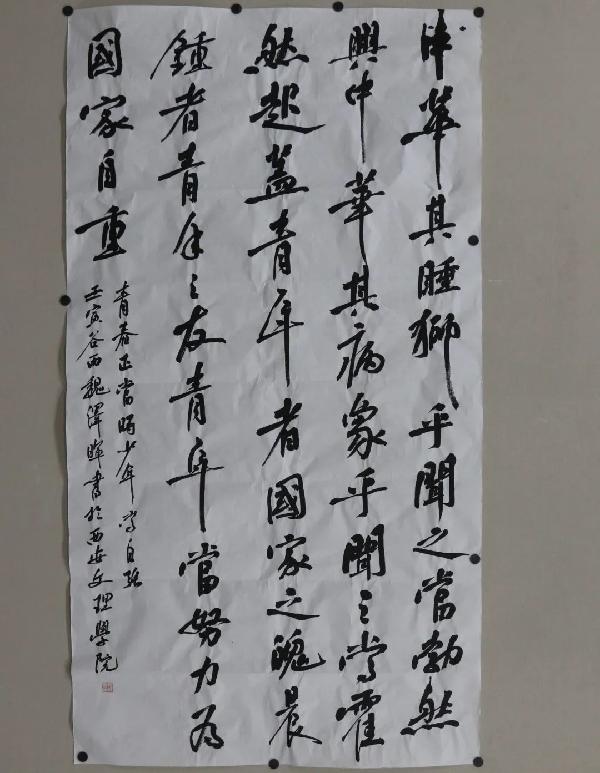 中華其睡獅乎聞之當勃然
興中華其病象乎聞之當霍
然起蓋青年者國家之魂晨
鍾者青年之友青年當努力為
國家自重
青春正當時少年當自強
壬寅谷雨魏澤暉書於西安文理學院